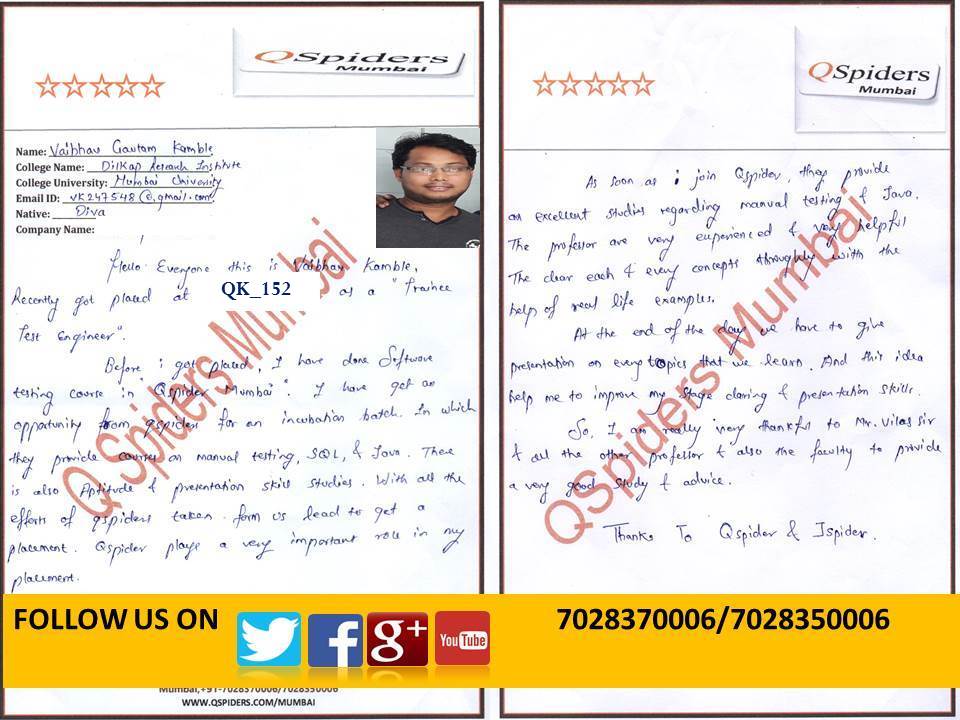 QSpiders
Mumbai
Name: Vaibhav Gautam Kamble
College Name: Dilkap Research Institute
College University: Mumbai University
Email ID: vk247548@gmail.com
Native: Diva
Company Name:
Hello Everyone this is Vaibhav Kamble,
Recently got placed at QK_152 as a "Trainee
Test Engineer".
Before i got placed, I have done Software
testing course in "Qspider Mumbai". I have get an
oppatunity from qspiders for an incubation batch. In which
they provide courses on manual testing, SQL, & Java. There
is also Aptitude & presentation skill studies. With all the
efforts of qspiders taken form us lead to get a
placement. Qspider playe a very important role in my
placement.
QSpiders Mumbai
QSpiders
Mumbai
As soon as i join Qspider, they provide
an excellent studies regarding manual testing & Java.
The professor are very experienced & very helpful
The clear each & every concepts throughly with the
help of real life examples.
At the end of the days we have to give
presentation on every topics that we learn. And this idea
help me to improve my stage daring & presentation skills.
So, I am really very thankful to Mr. Vilas sir
& all the other professor & also the faculty to provide
a very good study & advice.
Thanks To Qspider & Jspider.
QSpiders Mumbai
FOLLOW US ON
You Tube
7028370006/7028350006
Mumbai,+91-7028370006/7028350006
WWW.QSPIDERS.COM/MUMBAI